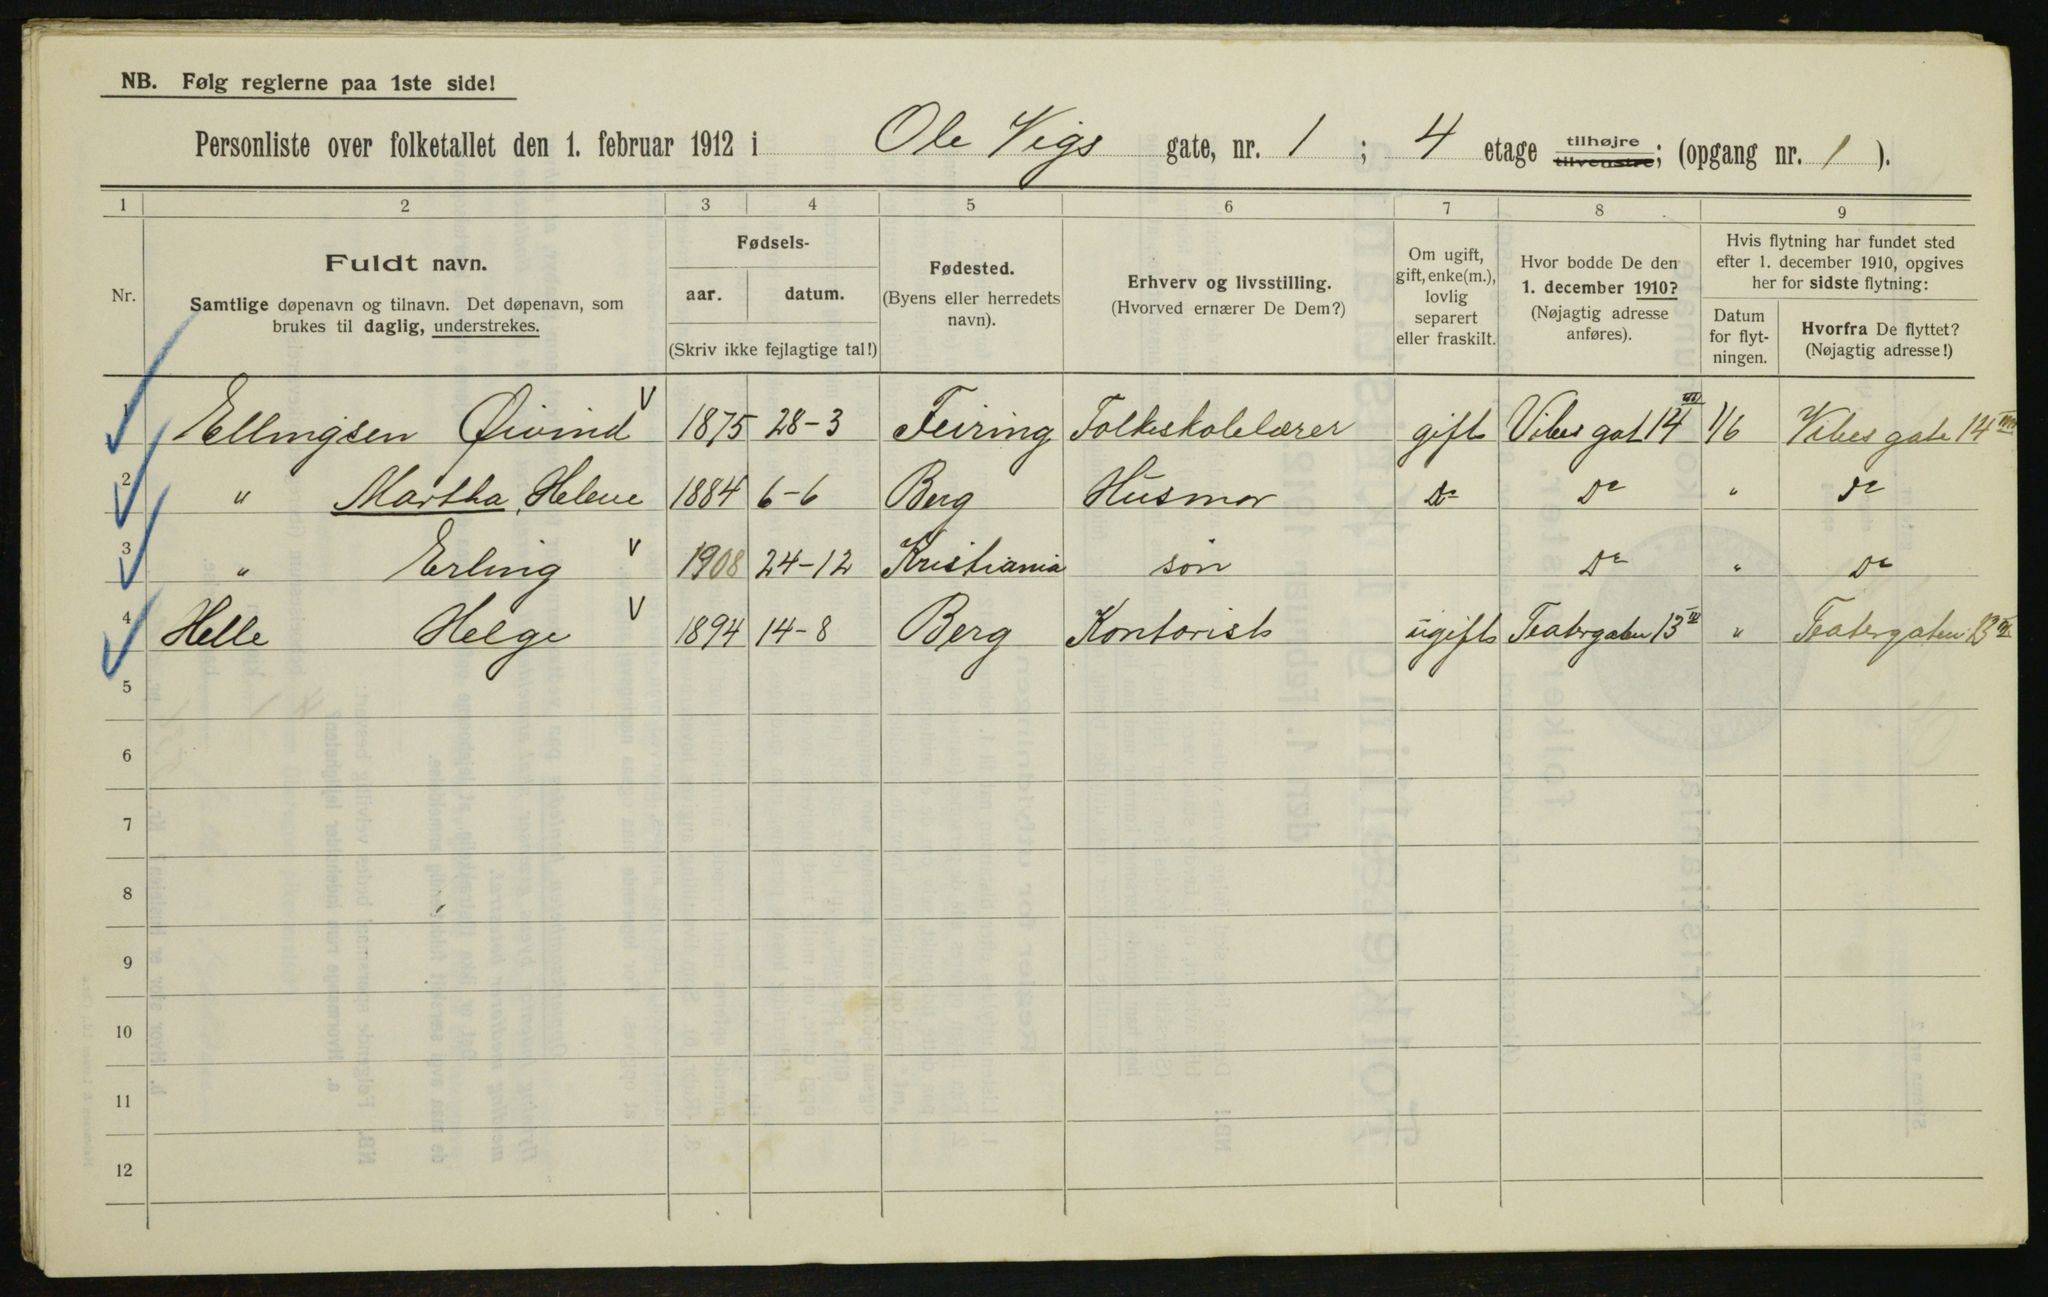 NB. Følg reglerne paa 1ste side!
Personliste over folketallet den 1. februar 1912 i Ole Vigs gate, nr. 1 ; 4 etage tilhøjre tilvenstre; (opgang nr. 1 ).
1 2 3 4 5 6 7 8 9
Nr.
Fuldt navn.
Samtlige døpenavn og tilnavn. Det døpenavn, som
brukes til daglig, understrekes.
Fødsels-
aar. datum.
(Skriv ikke fejlagtige tal!)
Fødested.
(Byens eller herredets
navn).
Erhverv og livsstilling.
(Hvorved ernærer De Dem?)
Om ugift,
gift, enke(m.),
lovlig
separert
eller fraskilt.
Hvor bodde De den
1. december 1910?
(Nøjagtig adresse
anføres).
Hvis flytning har fundet sted
efter 1. december 1910, opgives
her for sidste flytning:
Datum
for flyt-
ningen.
Hvorfra De flyttet?
(Nøjagtig adresse!)
1 Ellingsen Øivind V 1875 28-3 Feiring Folkeskolelærer gift Vibes gat 14 III 1/6 Vibes gate 14 III
2 " Martha, Helene 1884 6-6 Berg Husmor Do Do " Do
3 " Erling V 1908 24-12 Kristiania søn Do " Do
4 Helle Helge V 1894 14-8 Berg Kontorist ugift Teatergaten 13 IV " Teatergaten 13 IV
5
6
7
8
9
10
11
12